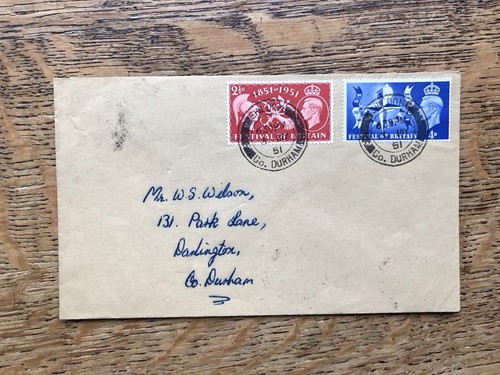 2½D 1851-1951
FESTIVAL OF BRITAIN
FESTIVAL OF BRITAIN 4D
51
Co. DURHAM
51
Co. DURHAM
Mr. W.S. Wilson,
131. Park Lane,
Darlington,
Co. Durham